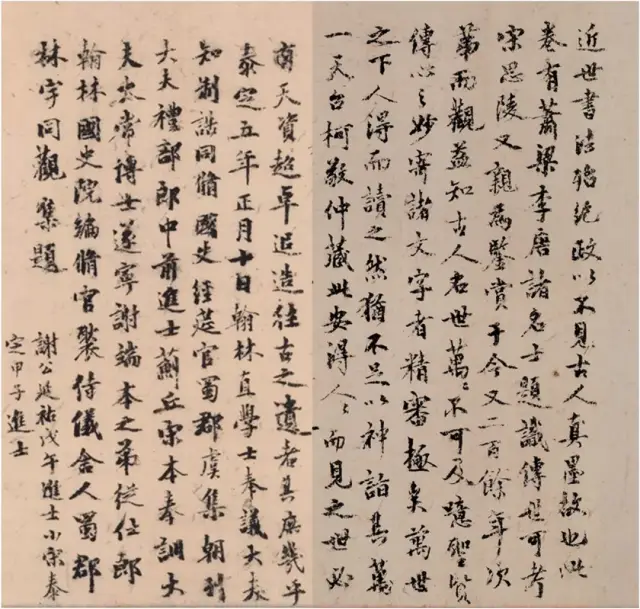 近世書法殆絕政以不見古人真墨故也此
卷有蕭梁李唐諸名士題識傳世可考
宋思陵又親爲鑒賞于今又二百餘年次
第而觀益知古人名世萬〻不可及噫聖賢
傳心之妙寄諸文字者精審極矣萬世
之下人得而讀之然猶不足以神詣其萬
一天台柯敬仲藏此安得人〻而見之世必
有天資超卓追造往古之遺者其庶幾乎
泰定五年正月十日翰林直學士奉議大夫
知制誥同脩國史經筵官蜀郡虞集朝列
大夫禮部郎中前進士薊丘宋本奉訓大
夫太常博士遂寧謝端本之弟從仕郎
翰林國史院編脩官褧侍儀舍人蜀郡
林宇同觀集題
謝公延祐戊午進士小宋泰
定甲子進士